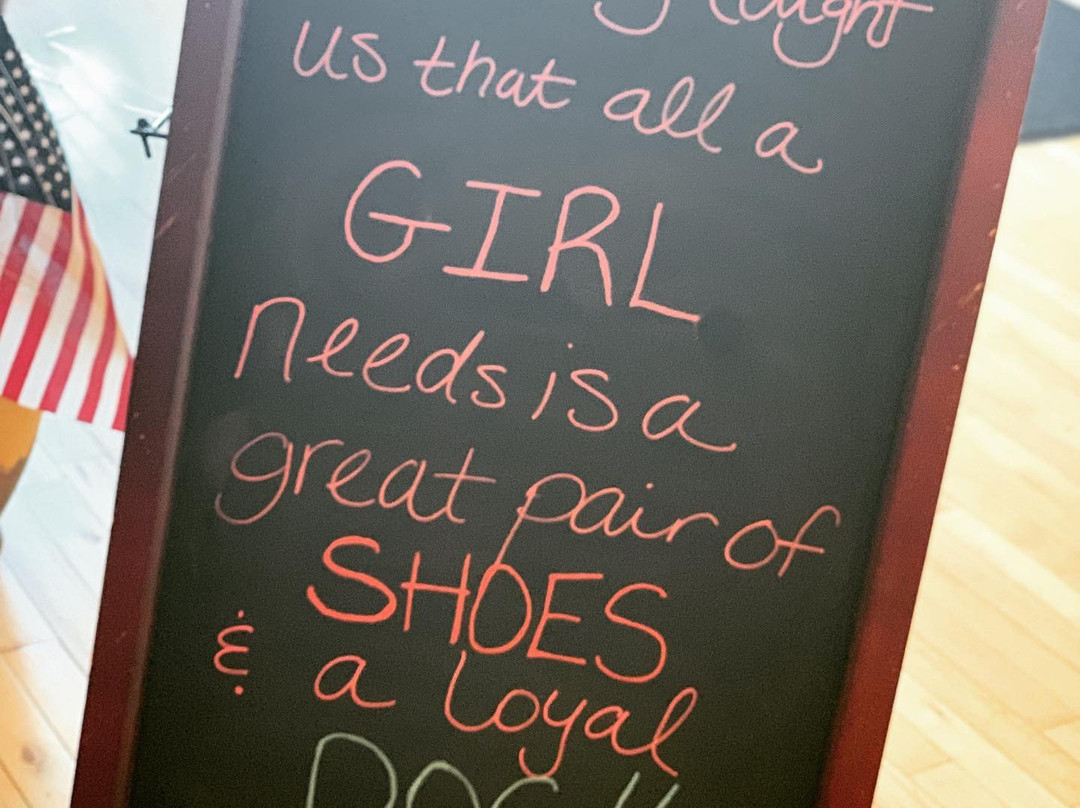 taught
us that all a
GIRL
needs is a
great pair of
SHOES
& a loyal
DOG !!